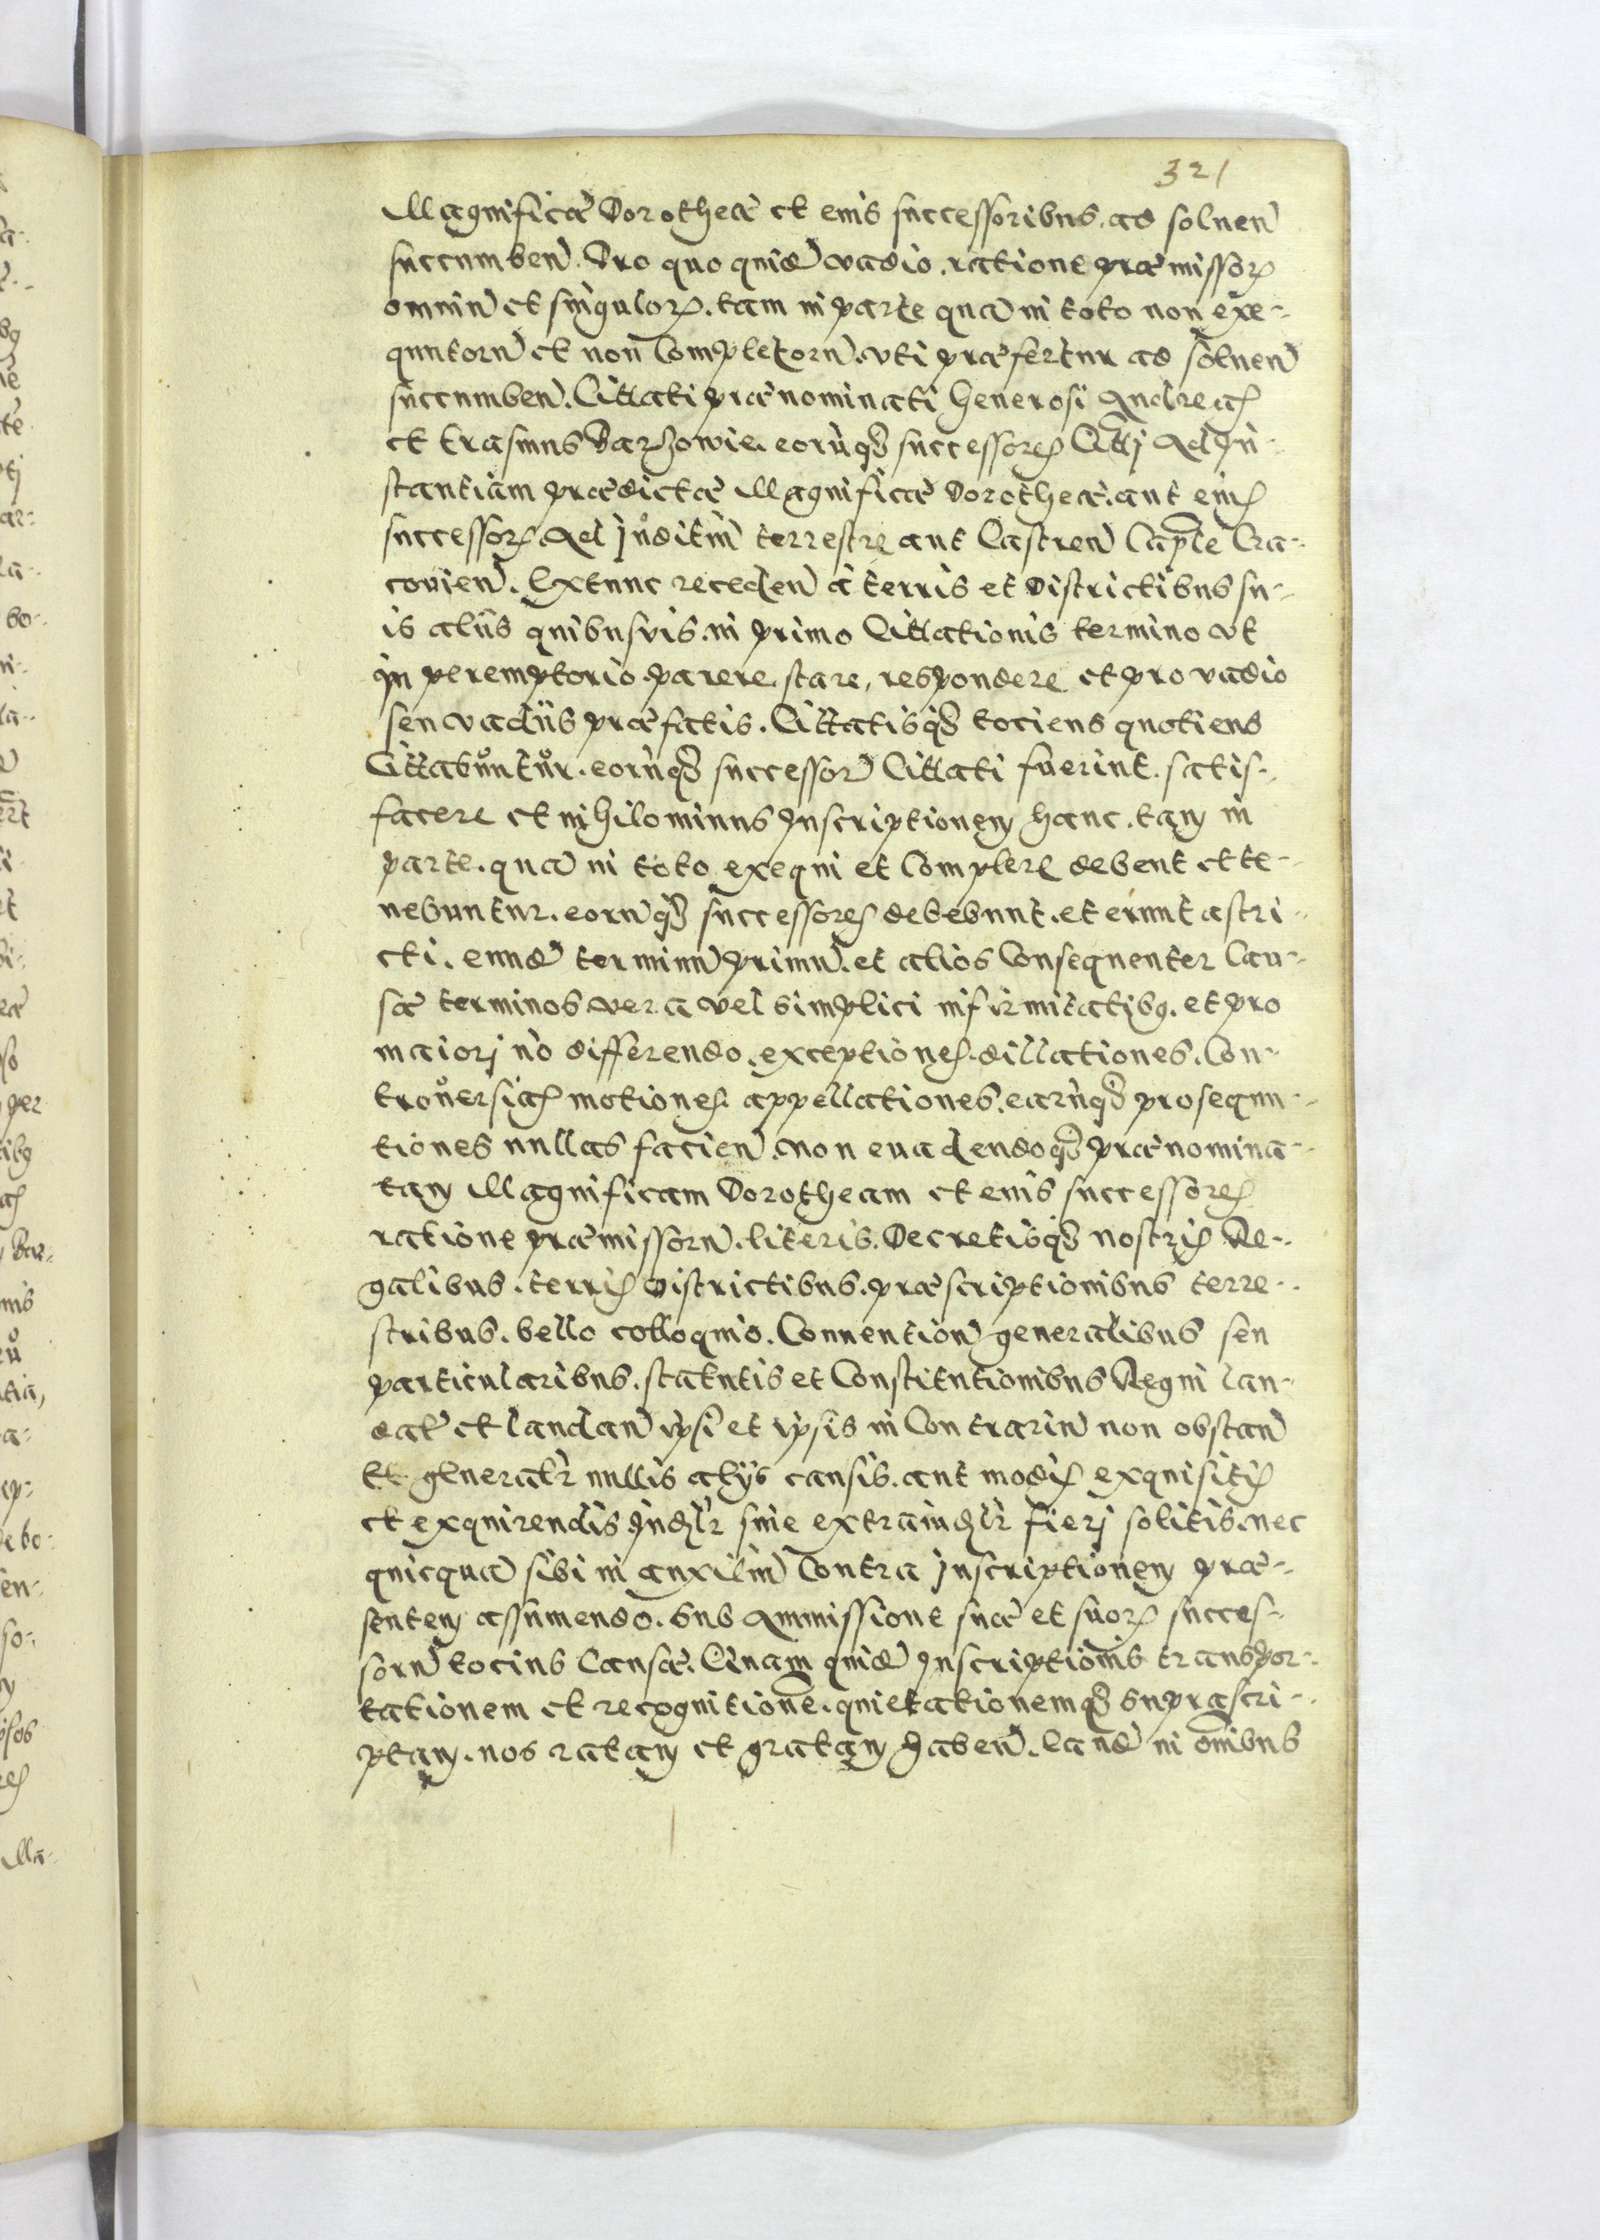 321
Magnificæ Dorotheæ et eius successoribus. ad soluen̄
succumben̄. Pro quo quidē vadio. ratione præmissoꝝ
omniū et singuloꝝ. tam in parte quā in toto non exe-
quutorū et non Completorū. vti præfertur ad soluen̄
succumben̄. Cittati prænominati Generosi Andreas
et Erasmus Barzowie. eorūqꝫ successores Citti Ad In-
stantiam prædictæ Magnificæ Dorotheæ. aut eius
successoꝝ. Ad Juditiū terrestre aut Castren̄ Capitle Cra-
couien̄. Extunc receden̄ à terris et Districtibus su-
is aliis quibusuis. in primo Cittationis termino vt
in peremptorio. parere. stare, respondere et pro vadio
seu vadiis præfatis. Cittatisqꝫ tociens quotiens
Cittabuntur. eorūqꝫ successor̄ Cittati fuerint. satis-
facere et nihilominus Inscriptionem hanc. tam in
parte. quā in toto exequi et Complere debent et te-
nebuntur. eorūqꝫ successores debebunt. et erunt astri-
cti. eundē terminū primū. et alios Consequenter Cau-
sæ terminos vera vel simplici infirmitatibꝫ. et pro
maiori nō differendo. exceptiones. dillationes. Con-
trouersias motiones. appellationes. earūqꝫ prosequu-
tiones nullas facien̄. non euadendoqꝫ prænomina-
tam Magnificam Dorotheam et eius successores
ratione præmissorū. literis. Decretisqꝫ nostris Re-
galibus. terris Districtibus. præscriptionibus terre-
stribus. bello colloquio. Conuention̄ generalibus seu
particularibus. statutis et Constitutionibus Regni lau-
dat̄ et laudan̄ ipsi et ipsis in Contrariū non obstan̄
Et generalr̄ nullis alijs causis. aut modis exquisitis
et exquirendis Iudlr̄ siue extraiudlr̄ fieri solitis. nec
quicquā sibi in auxiliū Contra Inscriptionem præ-
sentem assumendo. sub Ammissione suæ et suoꝝ succes-
sorū totius Causæ. Quam quidē Inscriptionis transpor-
tationem et recognitionē. quietationemqꝫ supra scri-
ptam. nos ratam et gratam haben̄. eandē in omībus